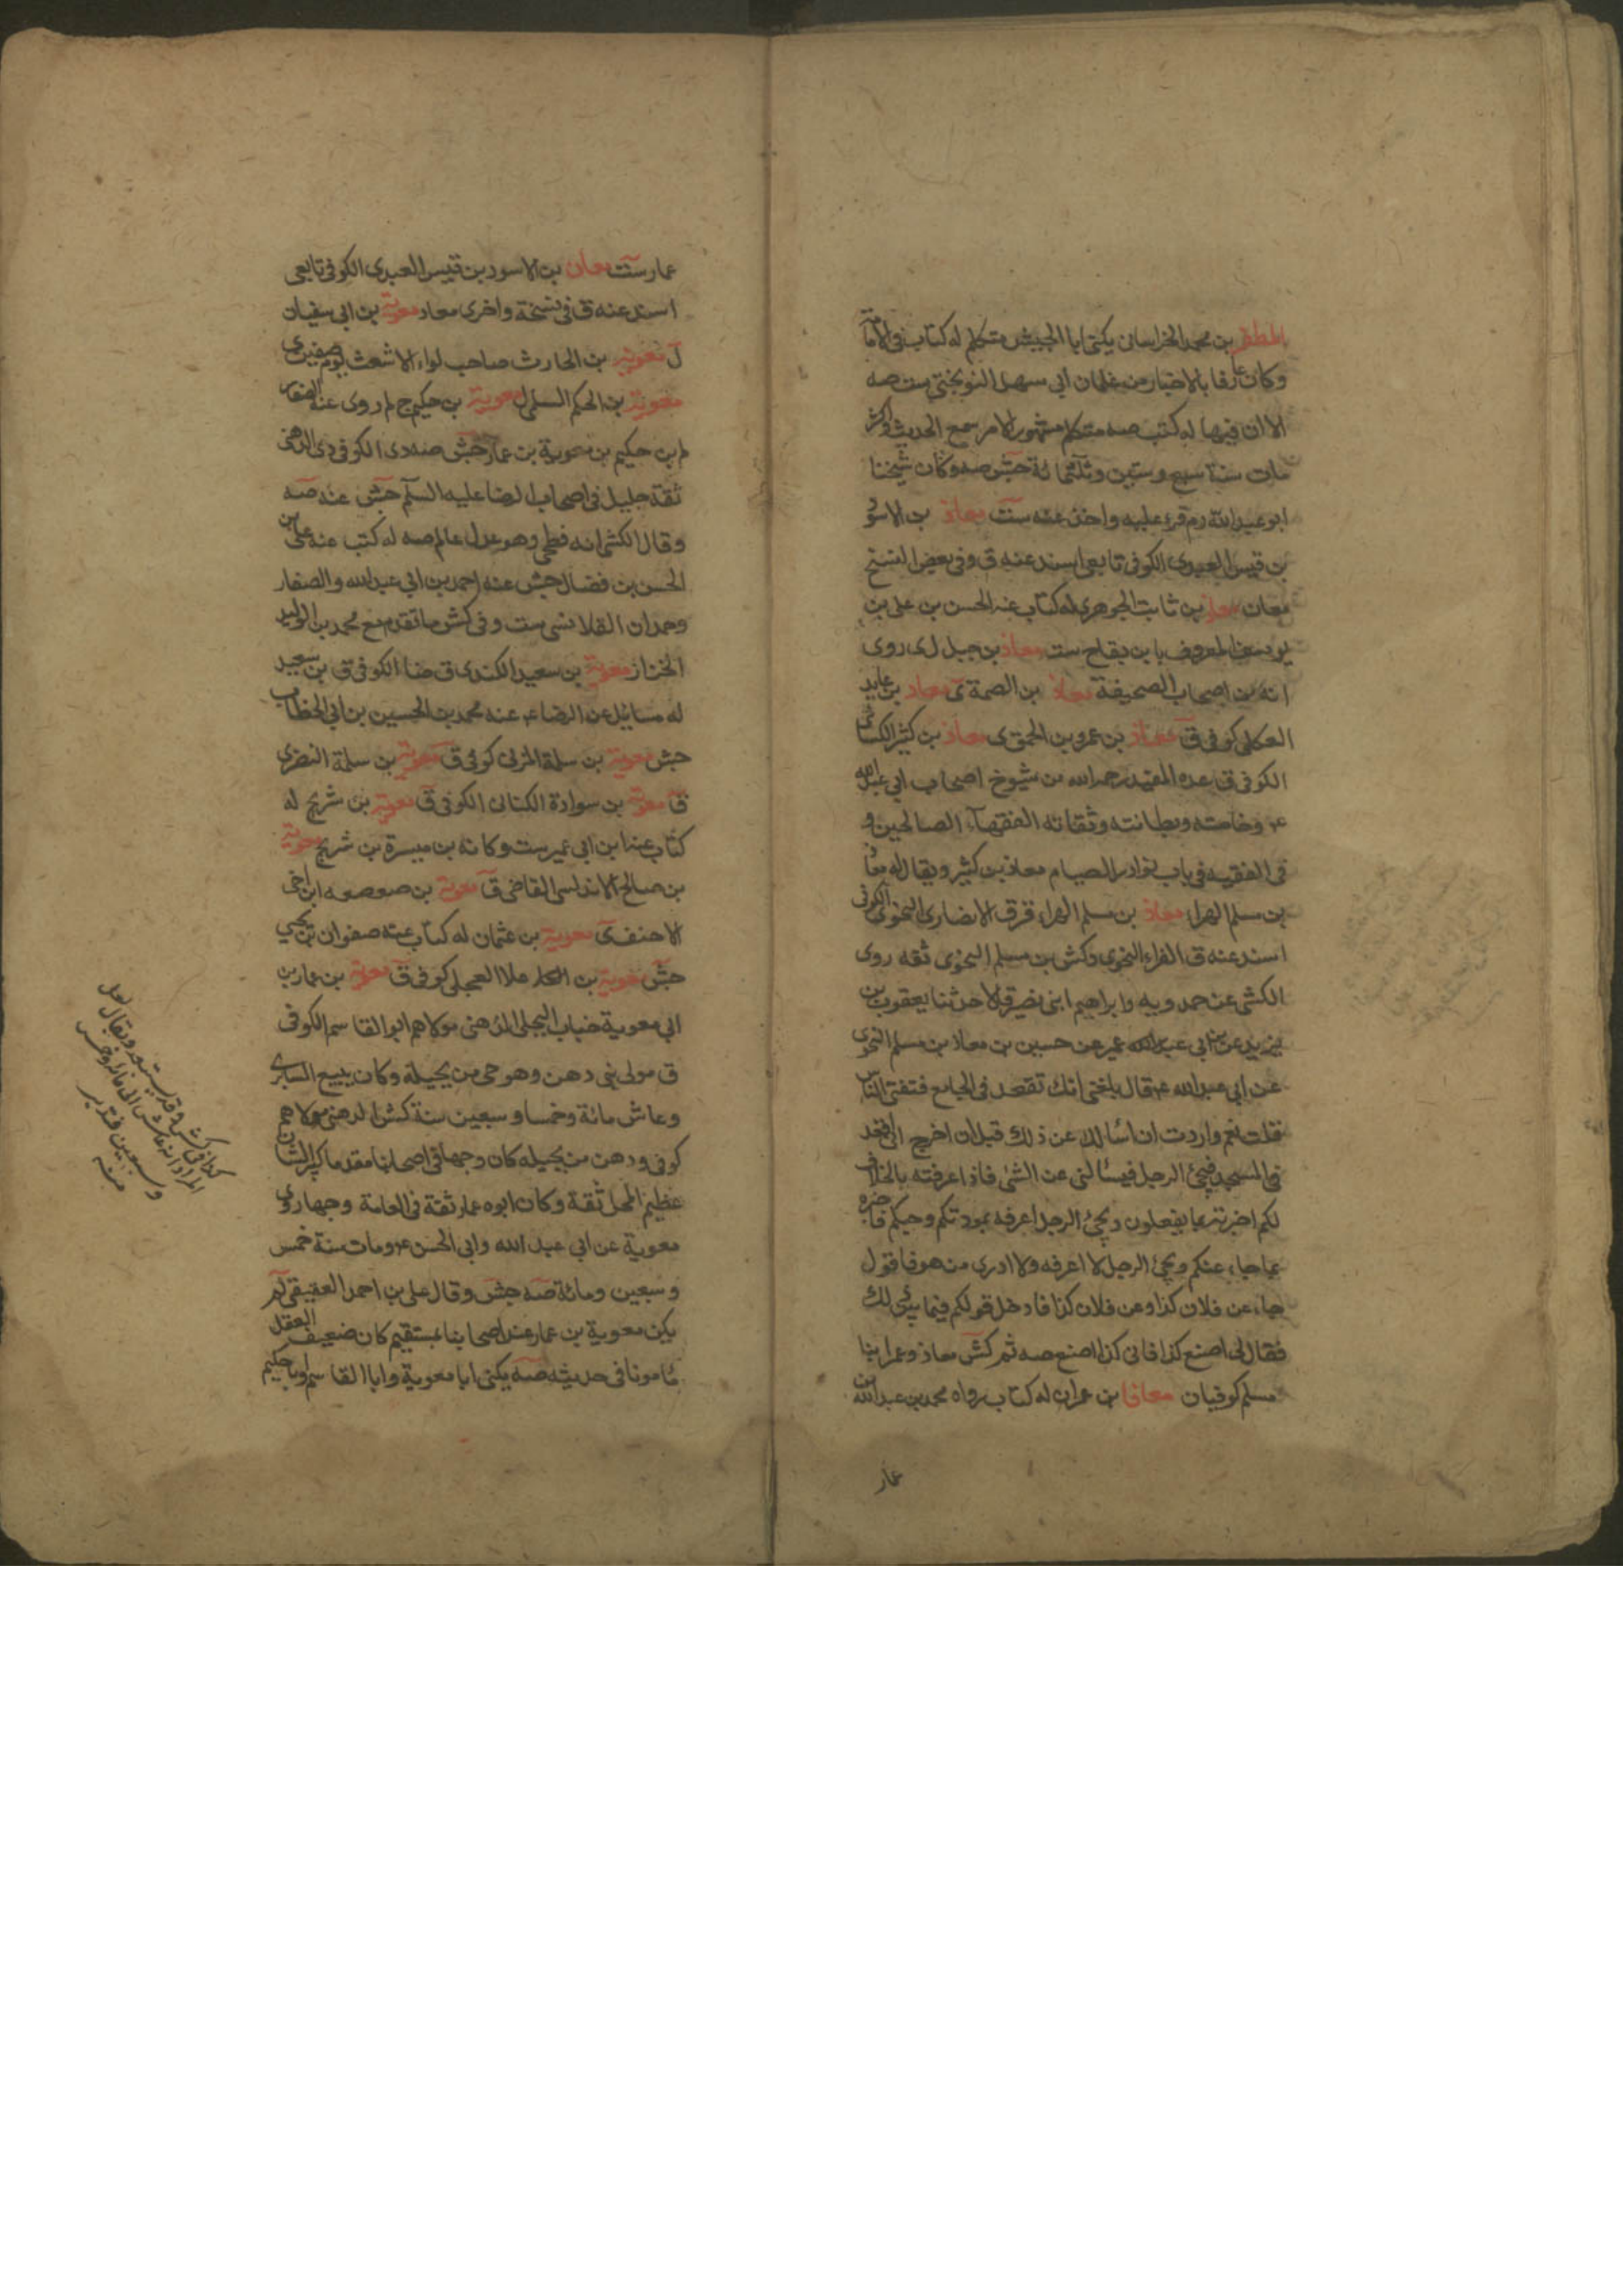 المظفر بن محمد الخراسانى يكنى ابا الجيش متكلم له كتاب فى الامامة
وكان عارفا بالاخبار من غلمان ابى سهل النوبختى ست صه
الا ان فيها له كتب صه متكلم مشهور الامر سمع الحديث واكثر
مات سنة سبع وستين وثلثمائة جش صه وكان شيخنا
ابو عبدالله ره قرء عليه واخذ عنه ست معاذ بن الاسود
بن قيس العبدى الكوفى تابعى اسند عنه ق وفى بعض النسخ
معان معاذ بن ثابت الجوهرى له كتاب عنه الحسن بن على بن
يوسف المعروف بابن بقاح ست معاذ بن جبل ل ى روى
انه من اصحاب الصحيفة معاذ بن الصمة ى معاد بن عابد
العكلى كوفى ق معاذ بن عمرو بن الحمق ى معاذ بن كثير الكسائى
الكوفى ق عده المفيد رحمه الله من شيوخ اصحاب ابى عبدالله
ع وخاصته وبطانته وثقاته الفقهاء الصالحين و
فى الفقيه فى باب نوادر الصيام معاذ بن كثير ويقال له معاذ
بن مسلم الهراء معاذ بن مسلم الهراء ق ق الانصارى النحوى الكوفى
اسند عنه ق الفراء النحوى وكش بن مسلم النحوى ثقه روى
الكشى عن حمدويه وابراهيم ابنى نصير قالا حدثنا يعقوب بن
يزيد عن بن ابى عمير عن حسين بن معاذ بن مسلم النحوى
عن ابى عبدالله ع قال بلغنى انك تقعد فى الجامع فتفتى الناس
قلت نعم واردت ان اسألك عن ذلك قبل ان اخرج انى اقعد
فى المسجد فيجئ الرجل فيسألنى عن الشئ فاذا عرفته بالخلاف
لكم اخبرته بما يفعلون ويجئ الرجل اعرفه بمودتكم وحبكم فاخبره
بما جاء عنكم ويجئ الرجل لا اعرفه ولا ادرى من هو فاقول
جاء عن فلان كذا وعن فلان كذا فادخل قولكم فيما بين ذلك
فقال لى اصنع كذا فانى كذا اصنع صه ثم كش معاذ وعمر ابنا
مسلم كوفيان معافا بن عمران له كتاب رواه محمد بن عبدالله بن
عمار
عمار ست معان بن الاسود بن قيس العبدى الكوفى تابعى
اسند عنه ق فى نسخة واخرى معاد معوية بن ابى سفيان
ل معوية بن الحارث صاحب لواء الاشعث يوم صفين ى
معوية بن الحكم السلمى ل معوية بن حكيم ج لم روى عنه الصفار
لم بن حكيم بن معوية بن عمار جش صه دى الكوفى دى الدهنى
ثقة جليل فى اصحاب الرضا عليه السلم جش عنه صه
وقال الكشى انه فطحى وهو عدل عالم صه له كتب عنه على بن
الحسن بن فضال جش عنه احمد بن ابى عبدالله والصفار
وحمدان القلانسى ست وفى كش ما تقدم مع محمد بن الوليد
الخزاز معوية بن سعيد الكندى ق ضا الكوفى ق بن سعيد
له مسائل عن الرضا ع عنه محمد بن الحسين بن ابى الخطاب
جش معوية بن سلمة المزنى كوفى ق معوية بن سلمة النضرى
ق معوية بن سوادة الكنانى الكوفى ق معوية بن شريح له
كتاب عنه ابن ابى عمير ست وكانه بن ميسرة بن شريح معوية
بن صالح الاندلسى القاضى ق معوية بن صعصعه ابن اخى
الاحنف ى معوية بن عثمان له كتاب عنه صفوان بن يحيى
جش معوية بن العلا العجلى كوفى ق معوية بن عمار بن
ابى معوية خباب البجلى الدهنى مولاهم ابو القاسم الكوفى
ق مولى بنى دهن وهو حى من بجيلة وكان يبيع السابرى
وعاش مائة وخمسا وسبعين سنة كش الدهنى مولاهم
كوفى ودهن من بجيله كان وجها فى اصحابنا مقدما كبير الشان
عظيم المحل ثقة وكان ابوه عمار ثقة فى العامة وجها روى
معوية عن ابى عبد الله وابى الحسن ع ومات سنة خمس
وسبعين ومائة صه جش وقال على بن احمد العقيقى لم
يكن معوية بن عمار عند اصحابنا بمستقيم كان ضعيف العقل
مامونا فى حديثه صه يكنى ابا معوية وابا القاسم وابا حكيم
كذا فى كش وقد يستبعد ويقال لعل
المراد انه عاش الى مائة وخمس
وسبعين فتدبر
منه